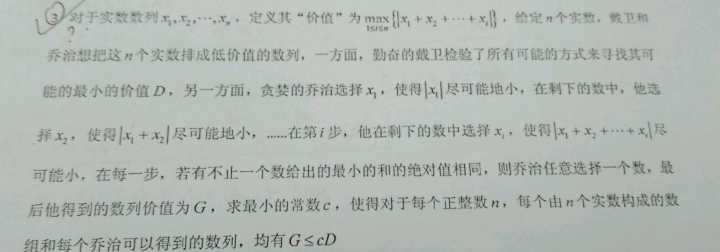 ③ 对于实数数列 x₁,x₂,⋯,xₙ，定义其“价值”为 max_{1≤i≤n}{|x₁+x₂+⋯+xᵢ|}，给定 n 个实数，戴卫和
?
乔治想把这 n 个实数排成低价值的数列，一方面，勤奋的戴卫检验了所有可能的方式来寻找其可
能的最小的价值 D，另一方面，贪婪的乔治选择 x₁，使得|x₁|尽可能地小，在剩下的数中，他选
择 x₂，使得|x₁+x₂|尽可能地小，......在第 i 步，他在剩下的数中选择 xᵢ，使得|x₁+x₂+⋯+xᵢ|尽
可能小，在每一步，若有不止一个数给出的最小的和的绝对值相同，则乔治任意选择一个数，最
后他得到的数列价值为 G，求最小的常数 c，使得对于每个正整数 n，每个由 n 个实数构成的数
组和每个乔治可以得到的数列，均有 G≤cD